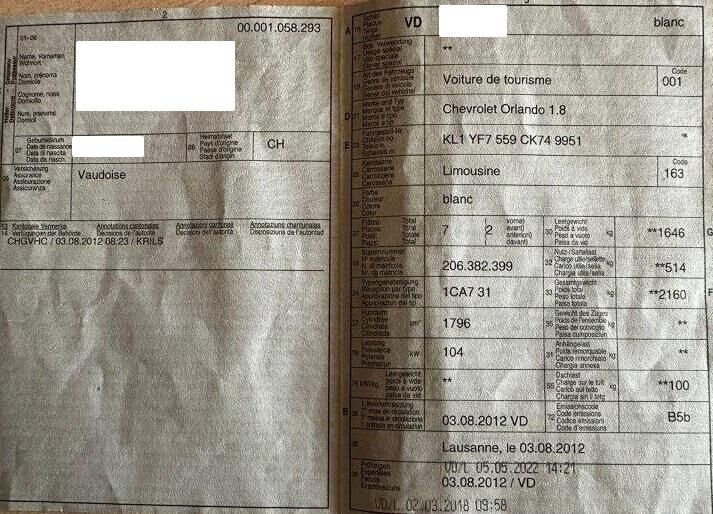 2
00.001.058.293
01-06
Name, Vornamen
Wohnort
Nom, prénoms
Domicile
Cognome, nomi
Domicilio
Num, prenums
Domicil
07 Geburtsdatum
Date de naissance
Data di nascita
Data da nasch.
08 Heimatstaat
Pays d'origine
Paese d'origine
Stadi d'origin
CH
09 Versicherung
Assurance
Assicurazione
Assicuranza
Vaudoise
13 Kantonale Vermerke Annotations cantonales Annotazioni cantonali Annotaziuns chantunalas
14 Verfügungen der Behörde Décisions de l'autorité Decisioni dell'autorità Disposiziuns da l'autoritad
CHGVHC / 03.08.2012 08:23 / KRILS
A 15 Schild
Plaque
Targa
VD
blanc
17 Bes. Verwendung
Usage spécial
Uso speciale
Diever spezial
**
19 Art des Fahrzeugs
Genre de véhicule
Genere di veicolo
Gener dal vehichel
Voiture de tourisme
Code
001
D 21 Marke und Typ
Marque et type
Marca e tipo
Marca e tip
Chevrolet Orlando 1.8
E 23 Fahrgestell-Nr.
Châssis no
Telaio n.
Schassis nr.
KL1 YF7 559 CK74 9951
25 Karosserie
Carrosserie
Carrozzeria
Carossaria
Limousine
Code
163
26 Farbe
Couleur
Colore
Colur
blanc
27 Plätze Total
Places Total
Posti Totale
Plazs Total
7 ( 2 vorne)
avant)
anteriori)
davant)
30 Leergewicht
Poids à vide
Peso a vuoto
Paisa da vid
kg
**1646
G
18 Stammnummer
N° matricule
N. di matricola
Nr. da matricla
206.382.399
32 Nutz-/Sattellast
Charge utile/sellette
Carico utile/sella
Chargia utila/sella
kg
**514
24 Typengenehmigung
Réception par type
Approvazione del tipo
Approvaziun dal tip
1CA7 31
33 Gesamtgewicht
Poids total
Peso totale
Paisa totala
kg
**2160
F
37 Hubraum
Cylindrée
Cilindrata
Cilindrada
cm³
1796
35 Gewicht des Zuges
Poids de l'ensemble
Peso del convoglio
Paisa cumposiziun
kg
**
76 Leistung
Puissance
Potenza
Prestaziun
kW
104
31 Anhängelast
Poids remorquable
Carico rimorchiato
Chargia annexa
kg
**
78 kW/kg Leergewicht
poids à vide
peso a vuoto
paisa da vid
**
55 Dachlast
Charge sur le toit
Carico sul tetto
Chargia sin il tetg
kg
**100
B 36 1. Inverkehrsetzung
1re mise en circulation
1a messa in circolazione
1. entrada en circulaziun
03.08.2012 VD
72 Emissionscode
Code émissions
Codice emissioni
Code d'emissiuns
B5b
38
Lausanne, le 03.08.2012
39 Prüfungen
Expertises
Perizie
Examinaziuns
VD/L 05.05.2022 14:21
03.08.2012 / VD
VD/L 02.03.2018 09:58